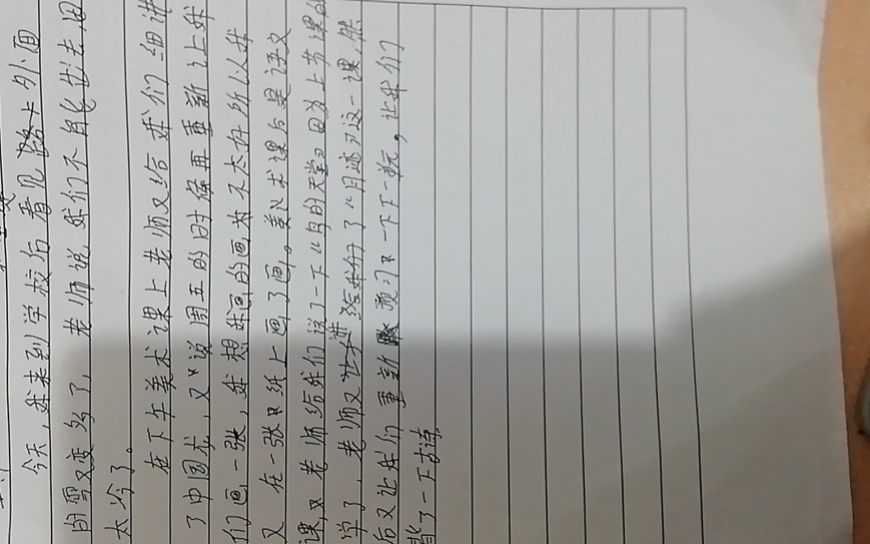 今天,我来到学校后看见路上外面
的雪又变多了,老师说我们不能出去因
太冷了。
在下午美术课上老师又给我们细讲
了中国龙,又说周五的时候再重新让我
们画一张,我想我画的画为不太好所以我
又在一张纸上画了画。美术课后是语文
课,老师给我们说了一下的天堂因为上节课的
学了,老师又给我们了习这一课,然
后又让我们重新预习一下下一课,让我们
背了一下古诗